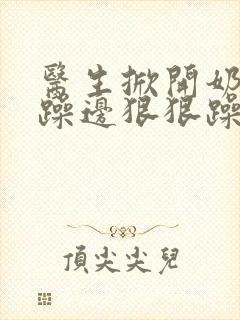 醫生掀開奶
躁邊狠狠躁
頂尖尖兒